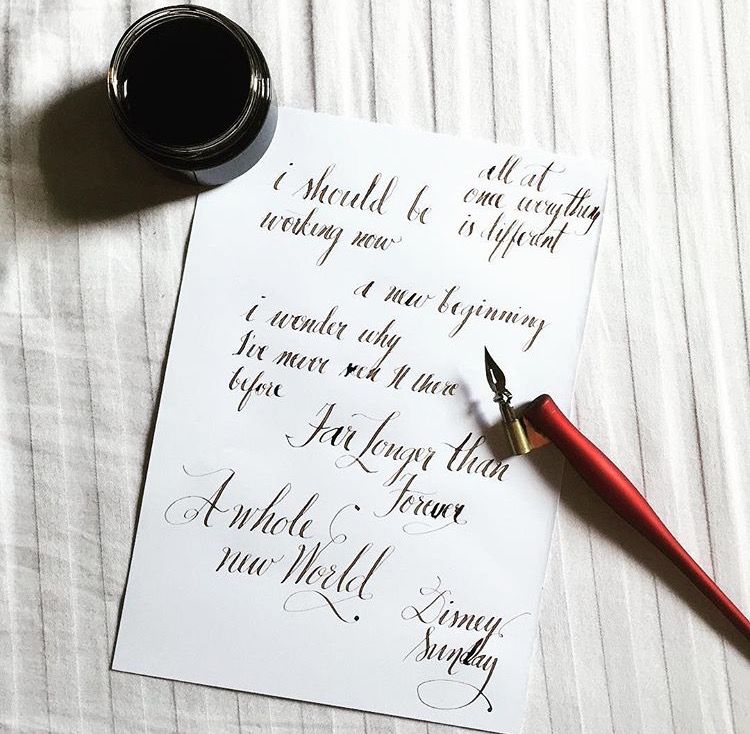 i should be
working now
all at
once everything
is different
a new beginning
i wonder why
I've never seen it there
before
Far Longer than
Forever
A whole
new World
Disney
Sunday